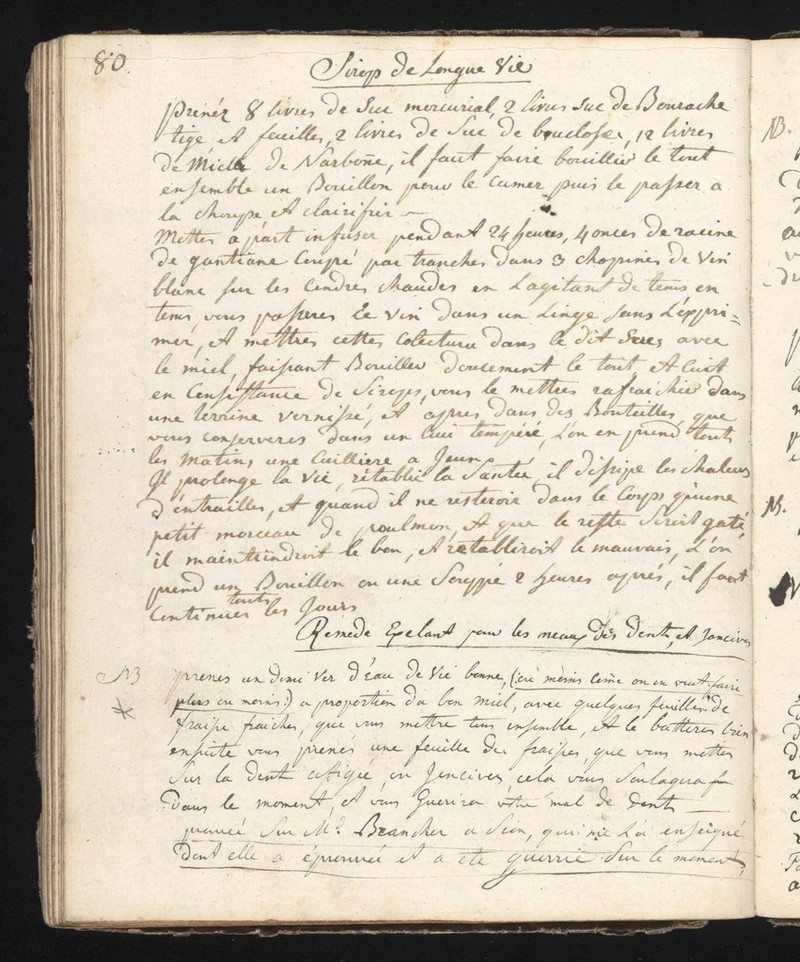 80.
Sirop de Longue Vie
prenéz 8 livres de Suc mercurial, 2 livres Suc de Bourache
tige et feuilles, 2 livres de Suc de buclosse, 12 livres
de Miele de Narbone, il faut faire bouillir le tout
ensemble un Bouillon pour le Cumer puis le passer a
la choupe et clairifier —
Mettes a part infuser pendant 24 heures, 4 onces de racine
de gantiane Coupé par tranches dans 3 chopines de Vin
blanc sur les Cendres chaudes en L'agitant de tems en
tems vous passeres Ce vin dans un Linge sans L'éppri=
mer, et mettres cettes Colectura dans le dit Sucs avec
le miel, faissant Bouiller doucement le tout, et Cuit
en Consistance de Sirops, vous le mettres rafraichir dans
une terrine vernissé, et apres dans des Bouteilles que
vous conserveres dans un lieu tempéré, L'on en prend touts
les Matins une Cuilliere a Jeun
Il prolonge la Vie, rétablie la Santée, il dissipe les chaleurs
d'éntrailles, et quand il ne resteroit dans le Corps qu'une
petit morceau de poulmon, et que le reste seroit gaté,
il maintiendroit le bon, et rétabliroit le mauvais, L'on
prend un Bouillon ou une Souppe 2 heures aprés, il faut
Continuer touts les Jours
Remede Exelant pour les meaux des dents, et Jancives
NB
prenes un demi Ver d'Eau de Vie bonne, (: ou moins come on en veut faire
plus ou moins :) a proportion du bon miel, avec quelques feuilles de
fraisse fraiches, que vous mettre tous ensemble, et le batteres bien
ensuite vous prenés une feuille de fraisses, que vous mettes
Sur la dent afligié, ou Jencives, cela vous Soulagera
dans le moment, et vous Guerira vôtre mal de dent —
prouvé Sur Me. Brancher a Sion, qui me L'a enseigné
dont elle a éprouvée et a ete guerrie Sur le moment,
NB.
NB.